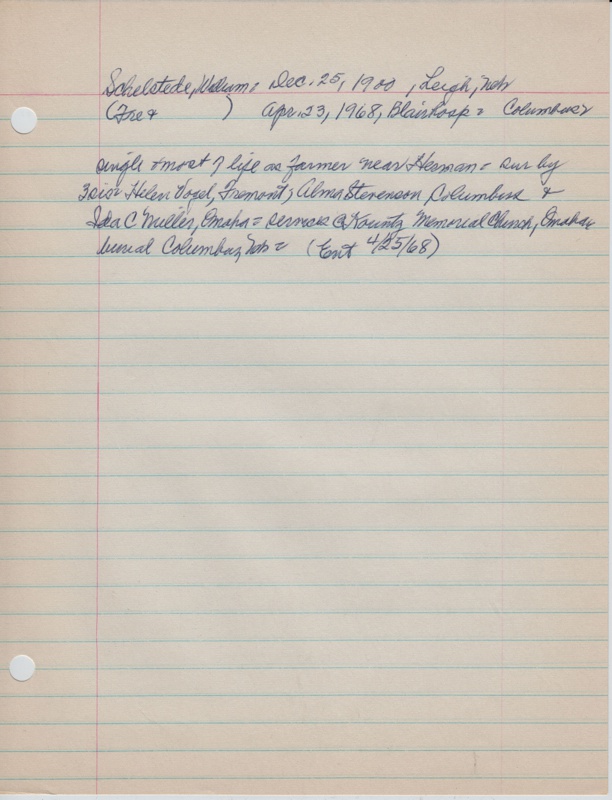 Schelstede, William = Dec. 25, 1900 , Leigh, Neb
(Fre & ) Apr. 23, 1968, Blair hosp = Columbus
single = most of life as farmer near Herman = sur by
3 sis = Helen Vogel, Fremont; Alma Stevenson, Columbus &
Ida C Miller, Omaha = services @ Kountz Memorial Church, Omaha
burial Columbus, Neb = (Ent 4/25/68)